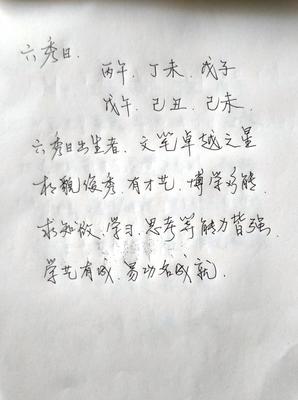 六秀日.
丙午、丁未、戊子
戊午、己丑、己未、
六秀日出生者、文笔卓越之星
相貌俊秀、有才艺、博学多能
求知欲、学习、思考等能力皆强、
学艺有成、易功名成就.